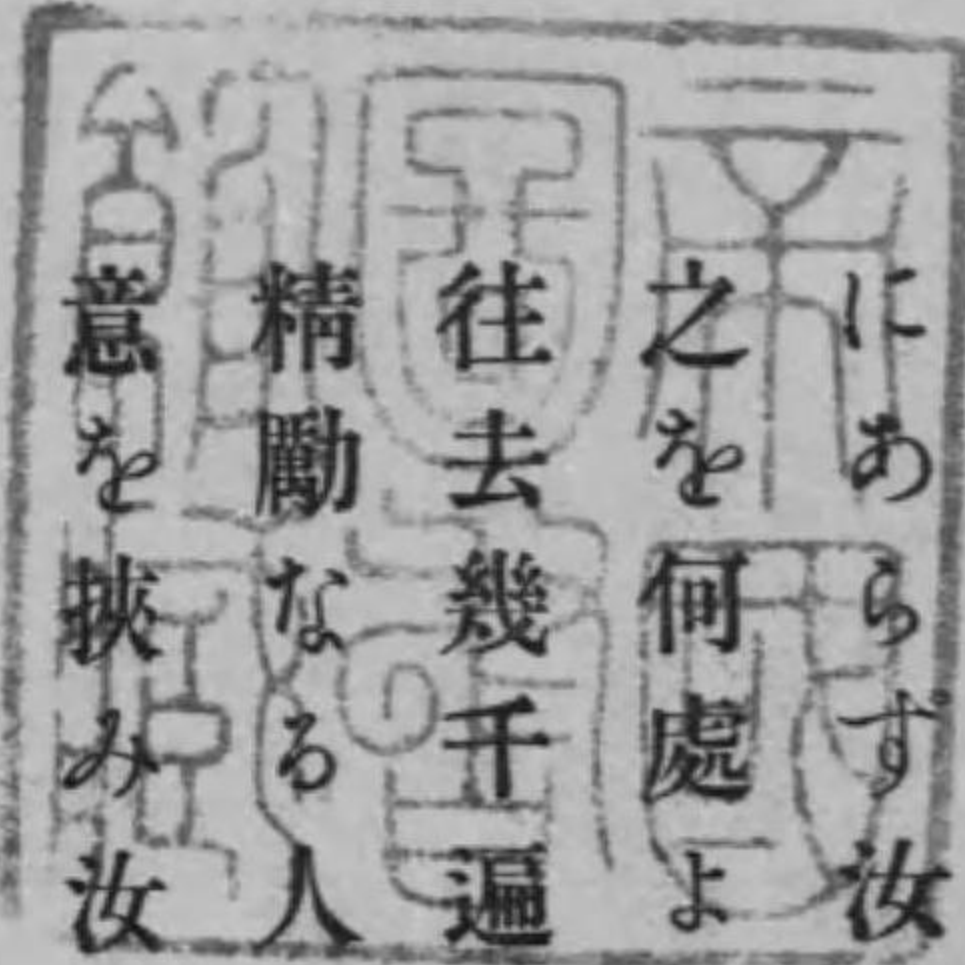 にあらず汝
之を何處よ
往去幾千遍
精勵なる人
意を挾み汝